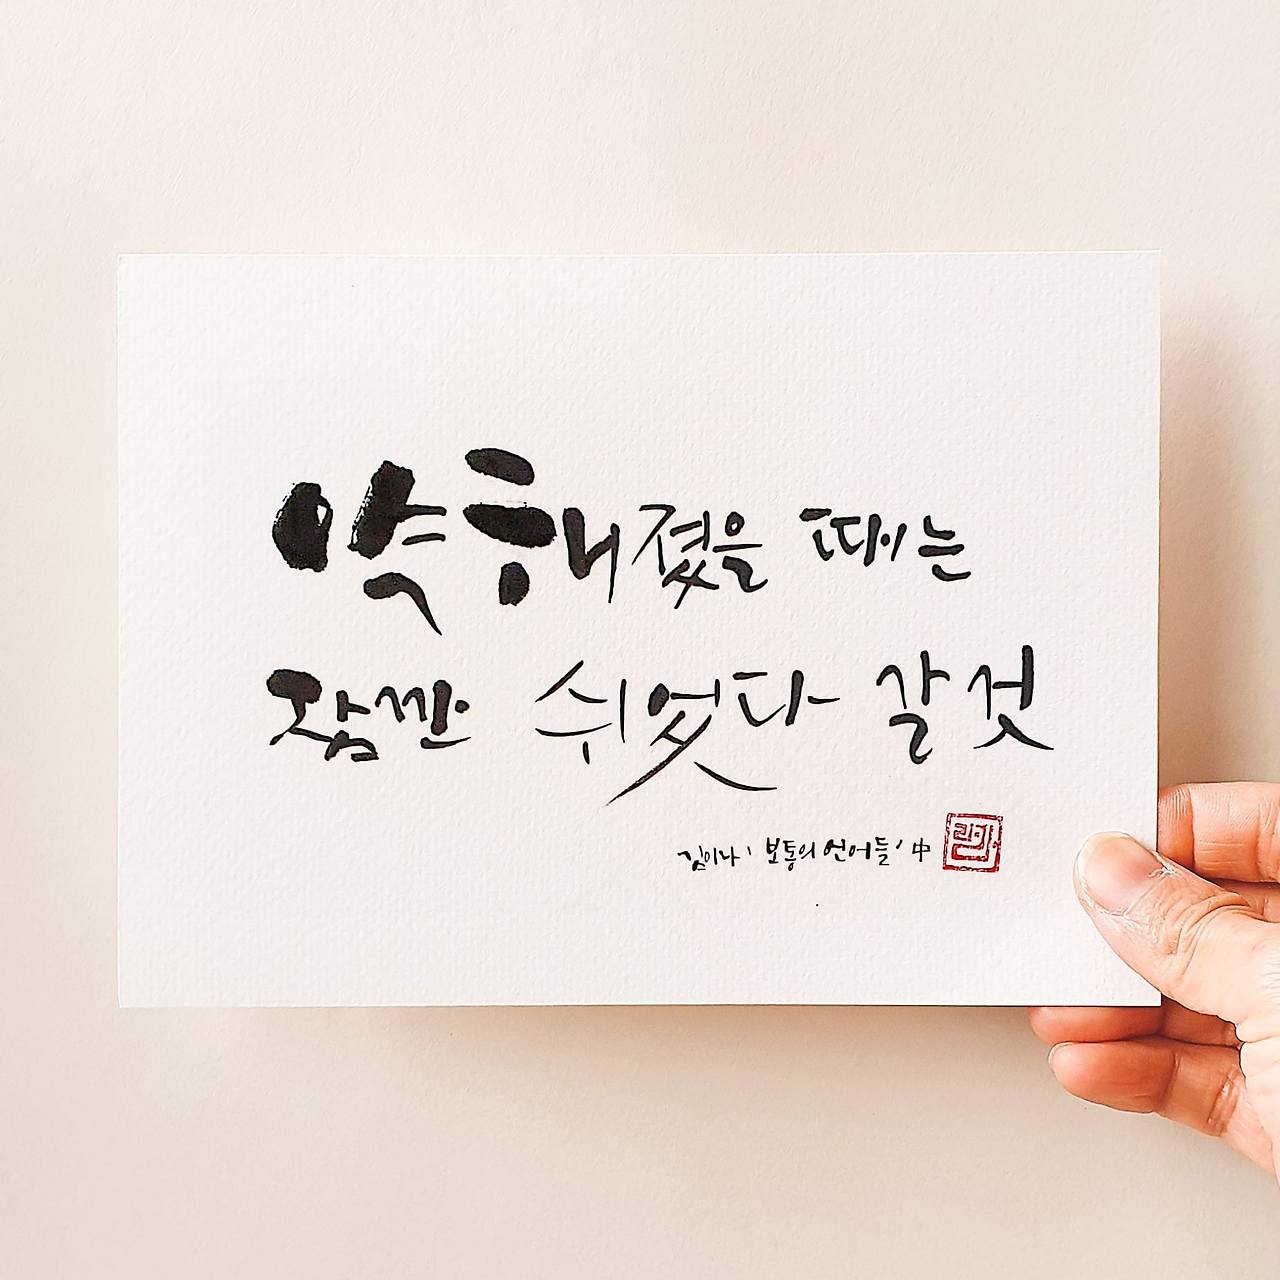 약해졌을 때는
잠깐 쉬었다 갈 것
김이나 '보통의 언어들' 中